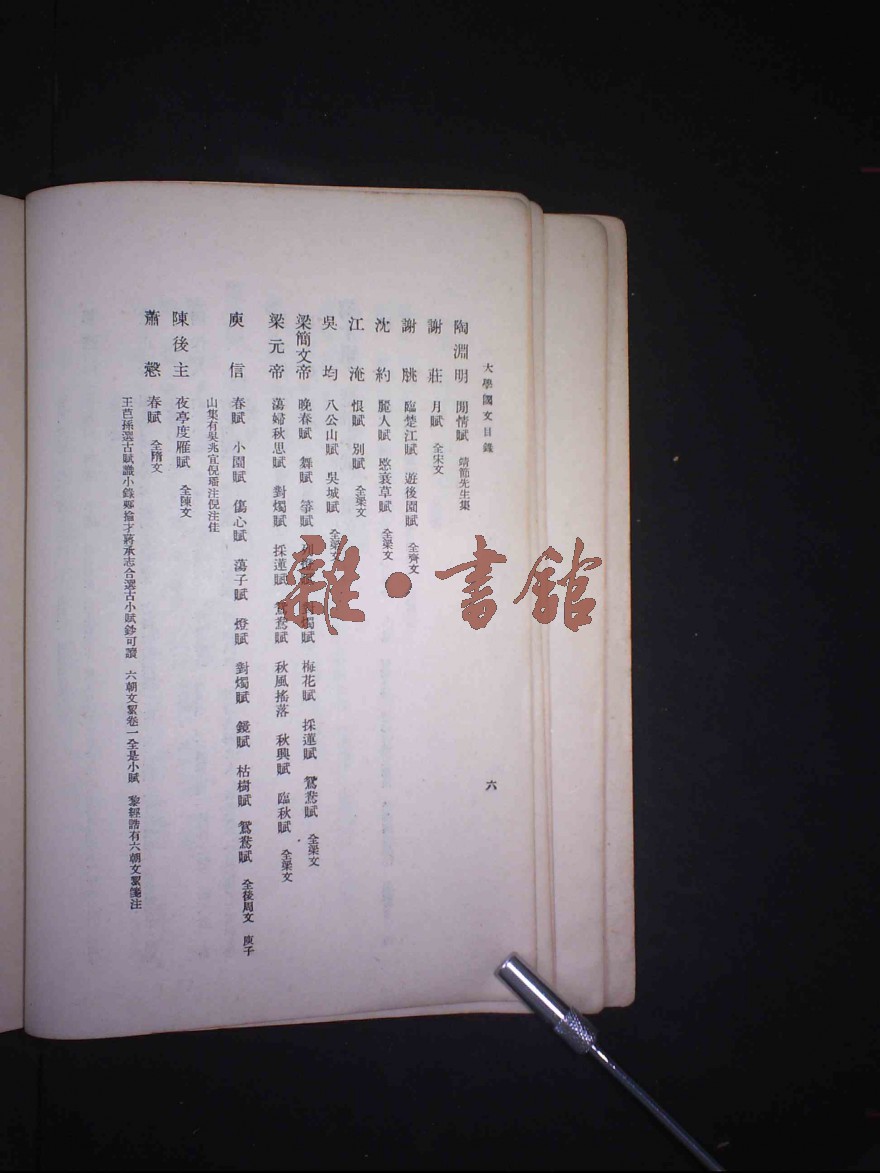 大學國文目錄 六
陶淵明 閒情賦 靖節先生集
謝莊 月賦 全宋文
謝朓 臨楚江賦 遊後園賦 全齊文
沈約 麗人賦 愍衰草賦 全梁文
江淹 恨賦 別賦 全梁文
吳均 八公山賦 吳城賦 全梁文
梁簡文帝 晚春賦 舞賦 箏賦 對燭賦 梅花賦 採蓮賦 鴛鴦賦 全梁文
梁元帝 蕩婦秋思賦 對燭賦 採蓮賦 鴛鴦賦 秋風搖落 秋興賦 臨秋賦 全梁文
庾信 春賦 小園賦 傷心賦 蕩子賦 燈賦 對燭賦 鏡賦 枯樹賦 鴛鴦賦 全後周文 庾子
山集有吳兆宜倪璠注倪注佳
陳後主 夜亭度雁賦 全陳文
蕭愨 春賦 全隋文
王芑孫選古賦識小錄鄭掄才蔣承志合選古小賦鈔可讀 六朝文絜卷一全是小賦 黎經誥有六朝文絜箋注
雜·書館